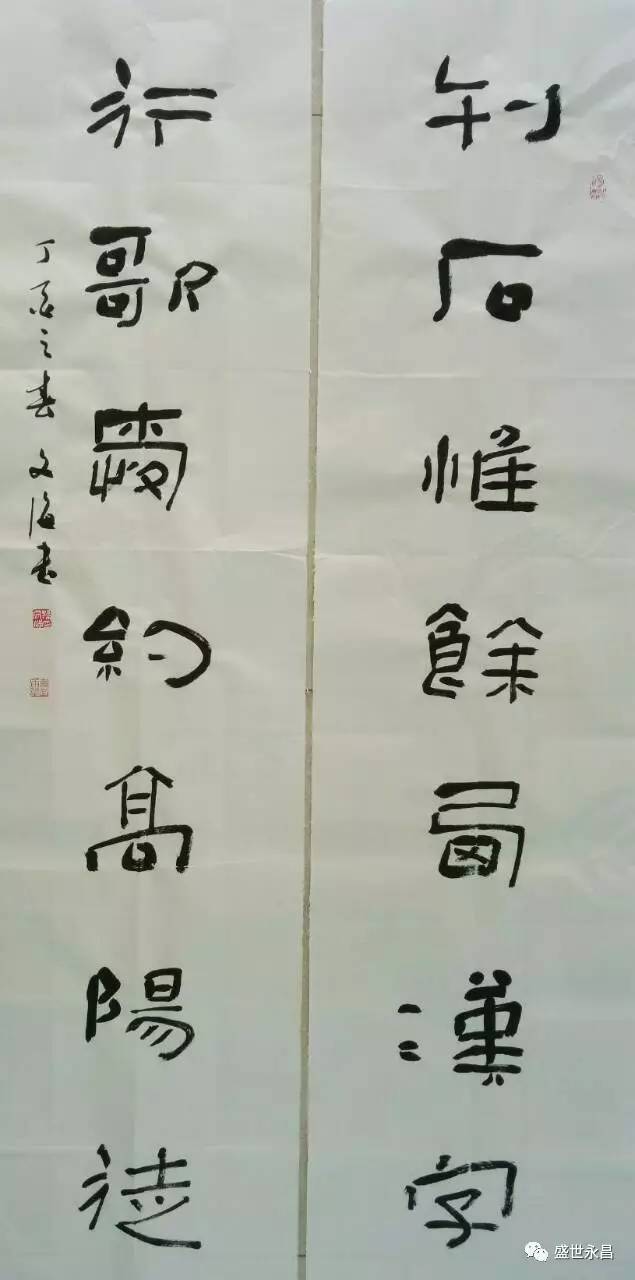 刊石惟餘西漢字
行歌約高陽徒
丁酉之春 文海書
盛世永昌